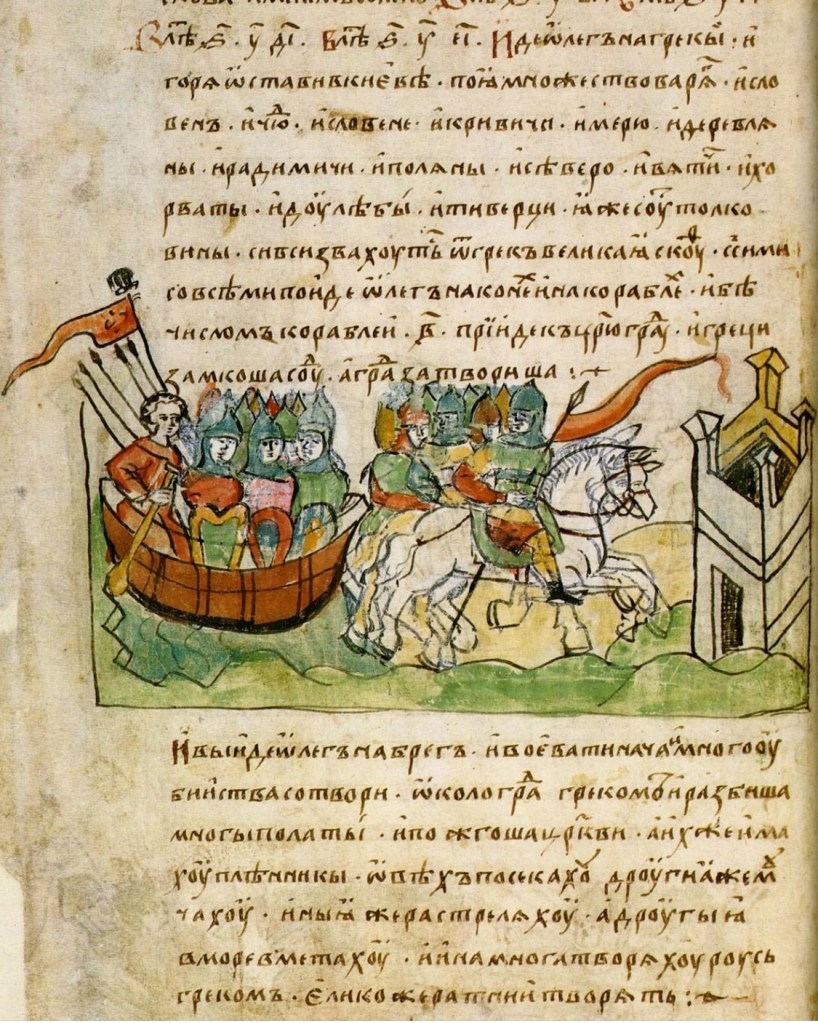 В лѣт ҂ѕ҃ у҃ д҃ı В лѣт ҂ѕ҃ у҃ е҃ı Иде ѡлегъ на грекы и
горѧ ѡставив киевѣ поꙗ множество варѧг и сло
венъ и чюд и словене и кривичи и мерю и деревлѧ
ны и радимичи и полѧны и сѣверо и вѧтичи и хо
рваты и доулѣбы и тиверци ꙗже соут толко
вины си вси звахоутьс ѿ грекъ великаꙗ скоуф с сими
со всѣми поиде ѡлегъ на конех и на кораблех и бѣ
числомъ кораблеи в҃ прїиде къ ц҃рюград и греци
замкоша соуд а град затвориша :~
И выиде ѡлегъ на брегъ и воевати нача и много оу
бииства сотвори ѡколо град греком и разбиша
многы полаты и пожгоша ц҃ркви а их же има
хоу плѣнникы ѡвѣхъ посекахоу дроугиꙗ же моу
чахоу иныꙗ же растрелѧхоу а дроугыꙗ
в море вметахоу и ина многа творѧхоу роусь
грекомъ елико же ратнии творѧть :~